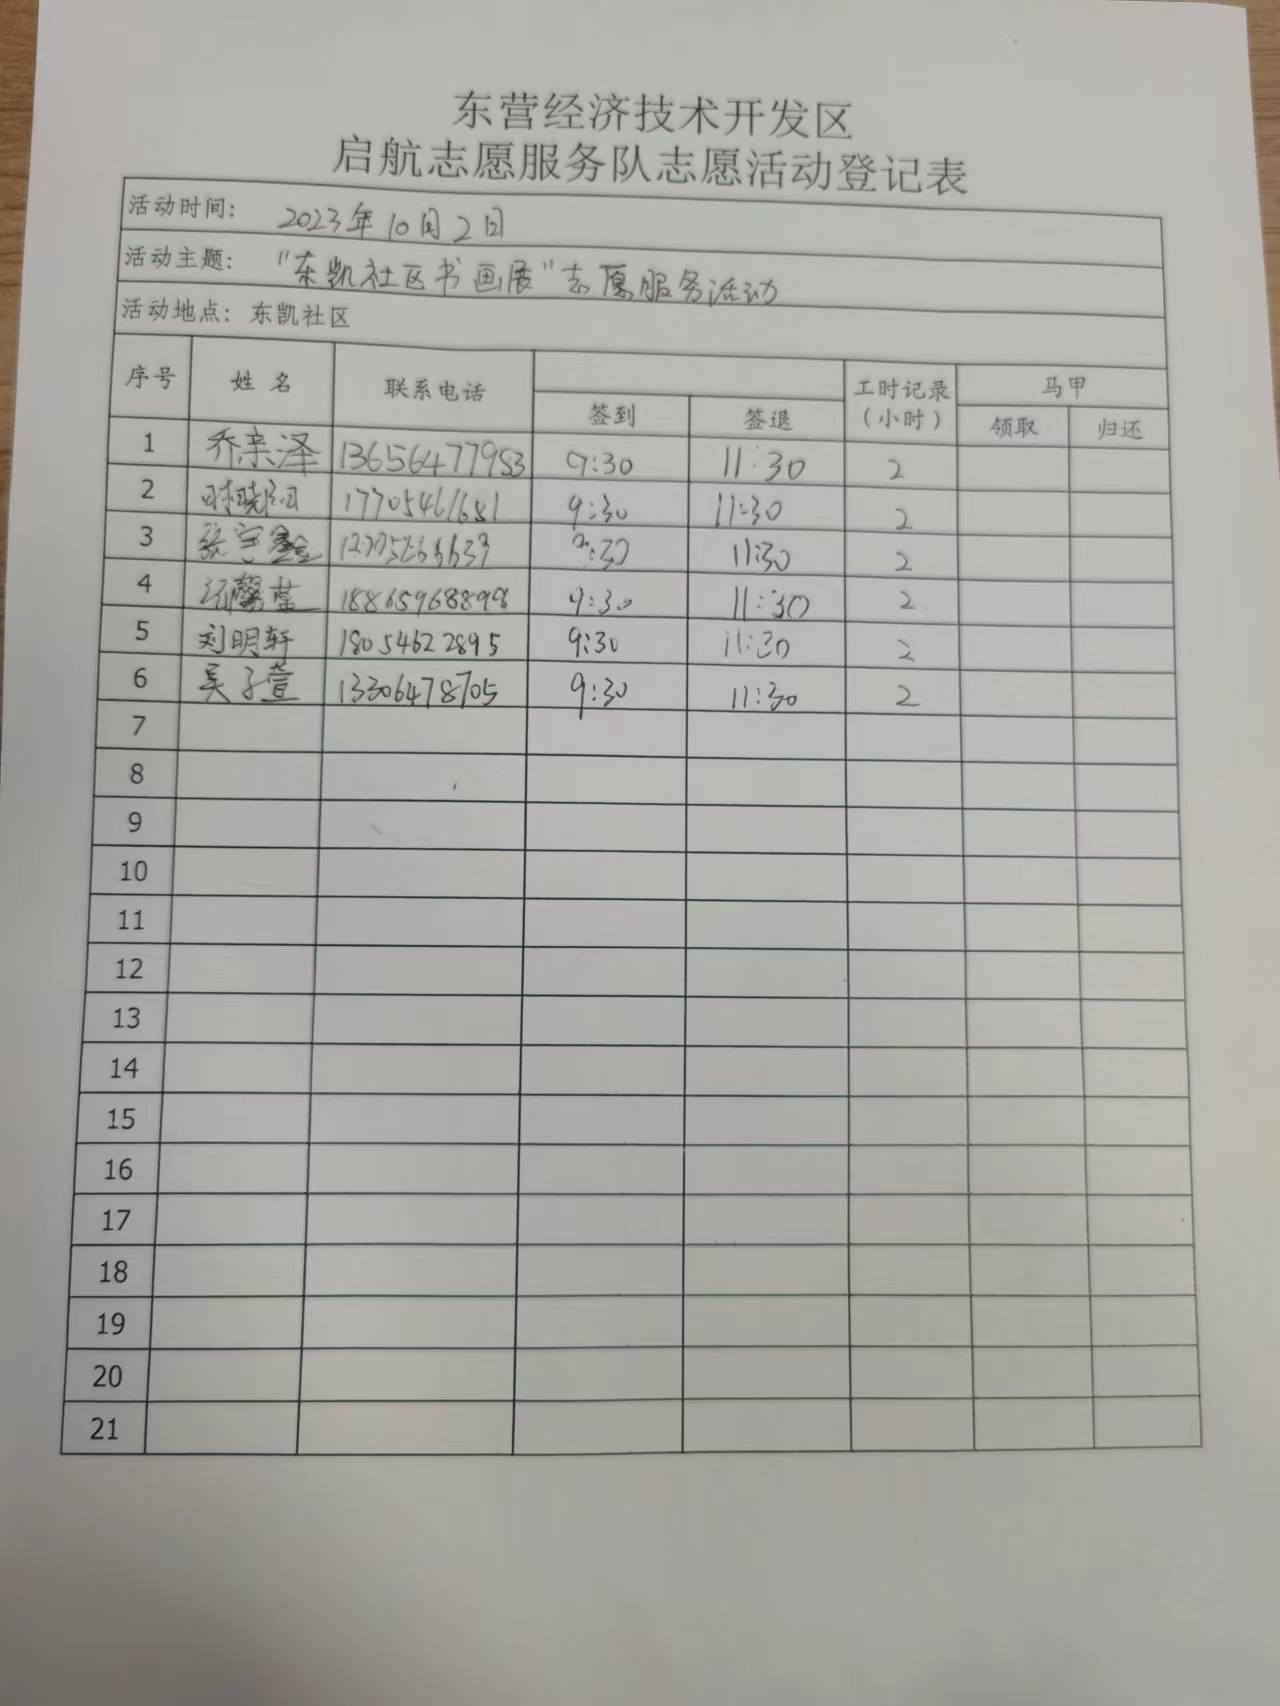 东营经济技术开发区
启航志愿服务队志愿活动登记表
活动时间： 2023年10月2日
活动主题： “东凯社区书画展”志愿服务活动
活动地点：东凯社区
序号 姓名 联系电话 签到 签退 工时记录（小时） 马甲 领取 归还
1 乔亲泽 13656477983 9:30 11:30 2
2 17705461681 9:30 11:30 2
3 张 9:30 11:30 2
4 18865968898 9:30 11:30 2
5 刘明轩 18054622895 9:30 11:30 2
6 吴子萱 13306478705 9:30 11:30 2
7
8
9
10
11
12
13
14
15
16
17
18
19
20
21